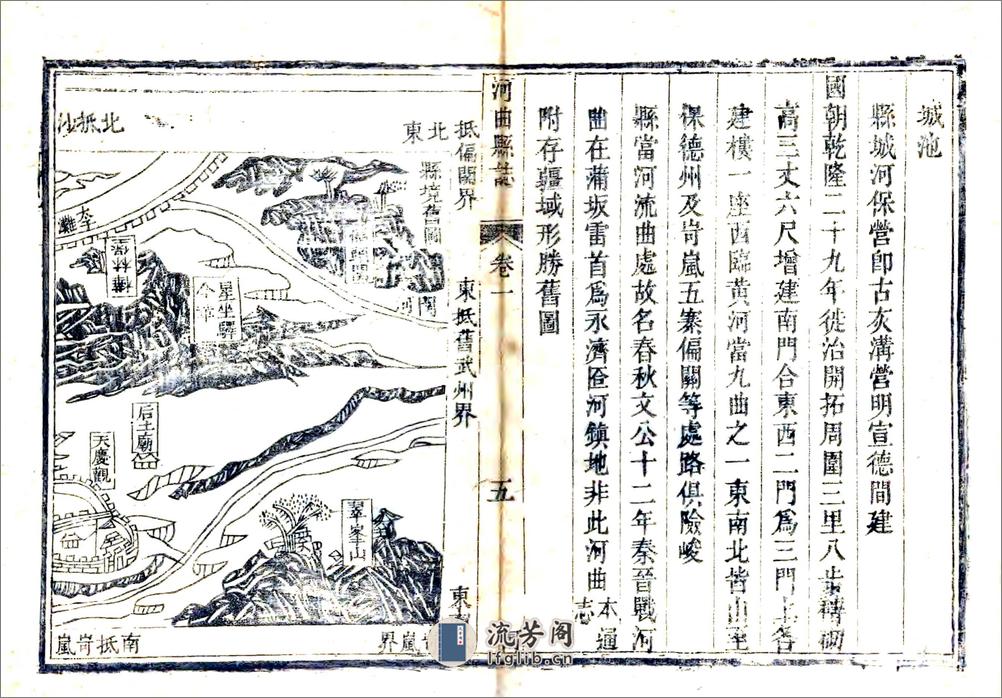 城池
縣城河保營卽古灰溝營明宣德間建
國朝乾隆二十九年徙治開拓周圍三里八步磚砌
高三丈六尺增建南門合東西二門爲三門上各
建樓一座西臨黃河當九曲之一東南北皆山至
保德州及岢嵐五寨偏關等處路俱險峻
縣當河流曲處故名春秋文公十二年秦晉戰河
曲在蒲坂雷首爲永濟匼河鎮地非此河曲
本通
志
附存疆域形勝舊圖
河曲縣誌
卷一
五
抵偏關界
東抵舊武州界
東
東北
北抵沙
縣境舊圖
關河
李
灘
樺林
星坐驛
今革
后土廟
天慶觀
翠峯山
嵐界
南抵岢嵐
流芳阁
lfglib.cn